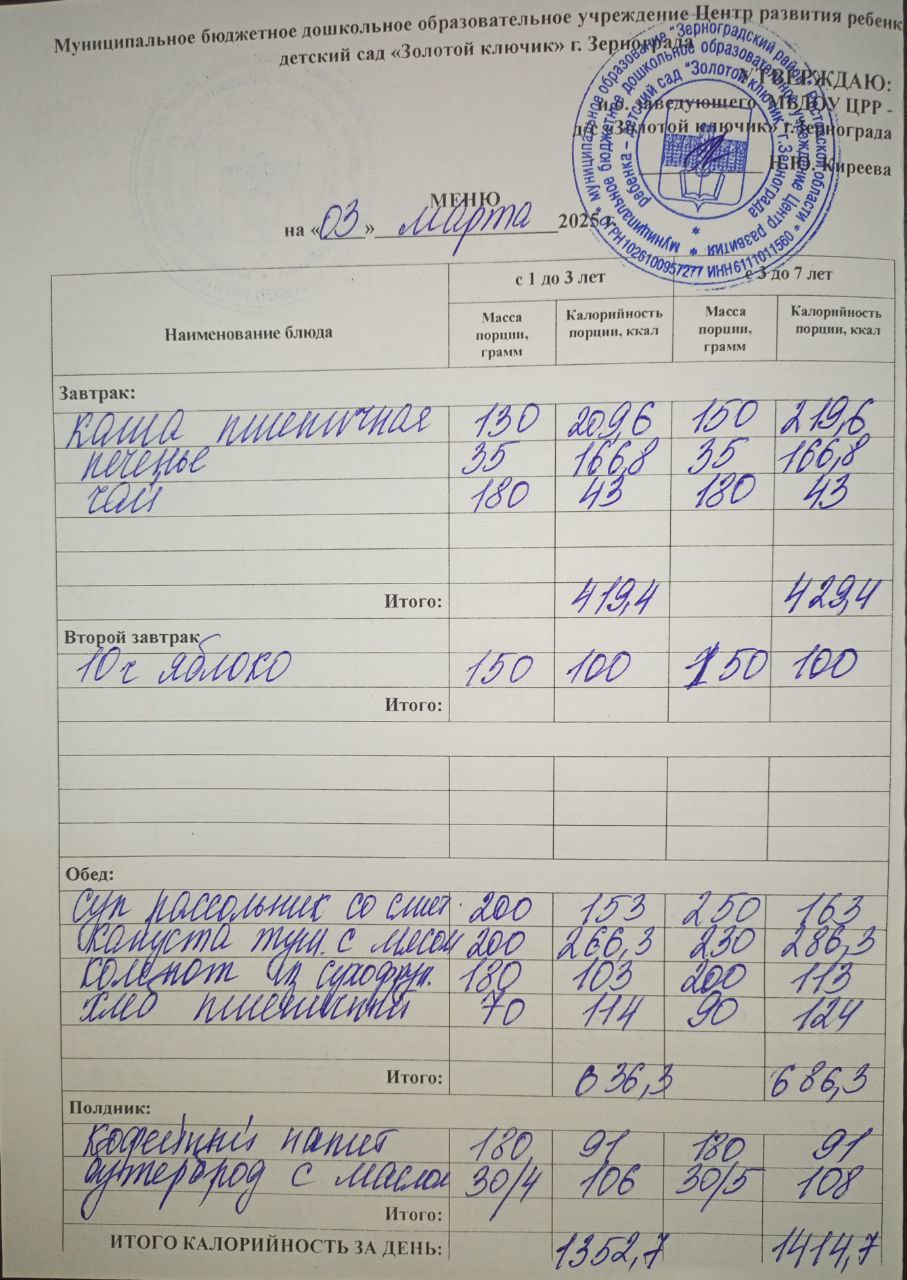 Муниципальное бюджетное дошкольное образовательное учреждение Центр развития ребенк
детский сад «Золотой ключик» г. Зернограда
УТВЕРЖДАЮ:
и.о. заведующего МБДОУ ЦРР -
д/с «Золотой ключик» г.Зернограда
Н.Ю. Киреева
муниципальное образование "Зерноградский район" Ростовской области * ОГРН1026100957277 ИНН6111011560 *
муниципальное бюджетное дошкольное образовательное учреждение Центр развития
ребенка – детский сад "Золотой ключик" г.Зернограда
МЕНЮ
на «03» марта 2025 г.
Наименование блюда с 1 до 3 лет с 3 до 7 лет
Масса порции, грамм Калорийность порции, ккал Масса порции, грамм Калорийность порции, ккал
Завтрак:
каша пшеничная 130 209,6 150 219,6
печенье 35 166,8 35 166,8
чай 180 43 180 43
Итого: 419,4 429,4
Второй завтрак
10ч яблоко 150 100 150 100
Итого:
Обед:
суп рассольник со смет. 200 153 250 163
капуста туш. с мясом 200 266,3 230 286,3
компот из сухофр. 180 103 200 113
хлеб пшеничный 70 114 90 124
Итого: 636,3 686,3
Полдник:
кофейный напит 180 91 180 91
бутерброд с маслом 30/4 106 30/5 108
Итого:
ИТОГО КАЛОРИЙНОСТЬ ЗА ДЕНЬ: 1352,7 1414,7